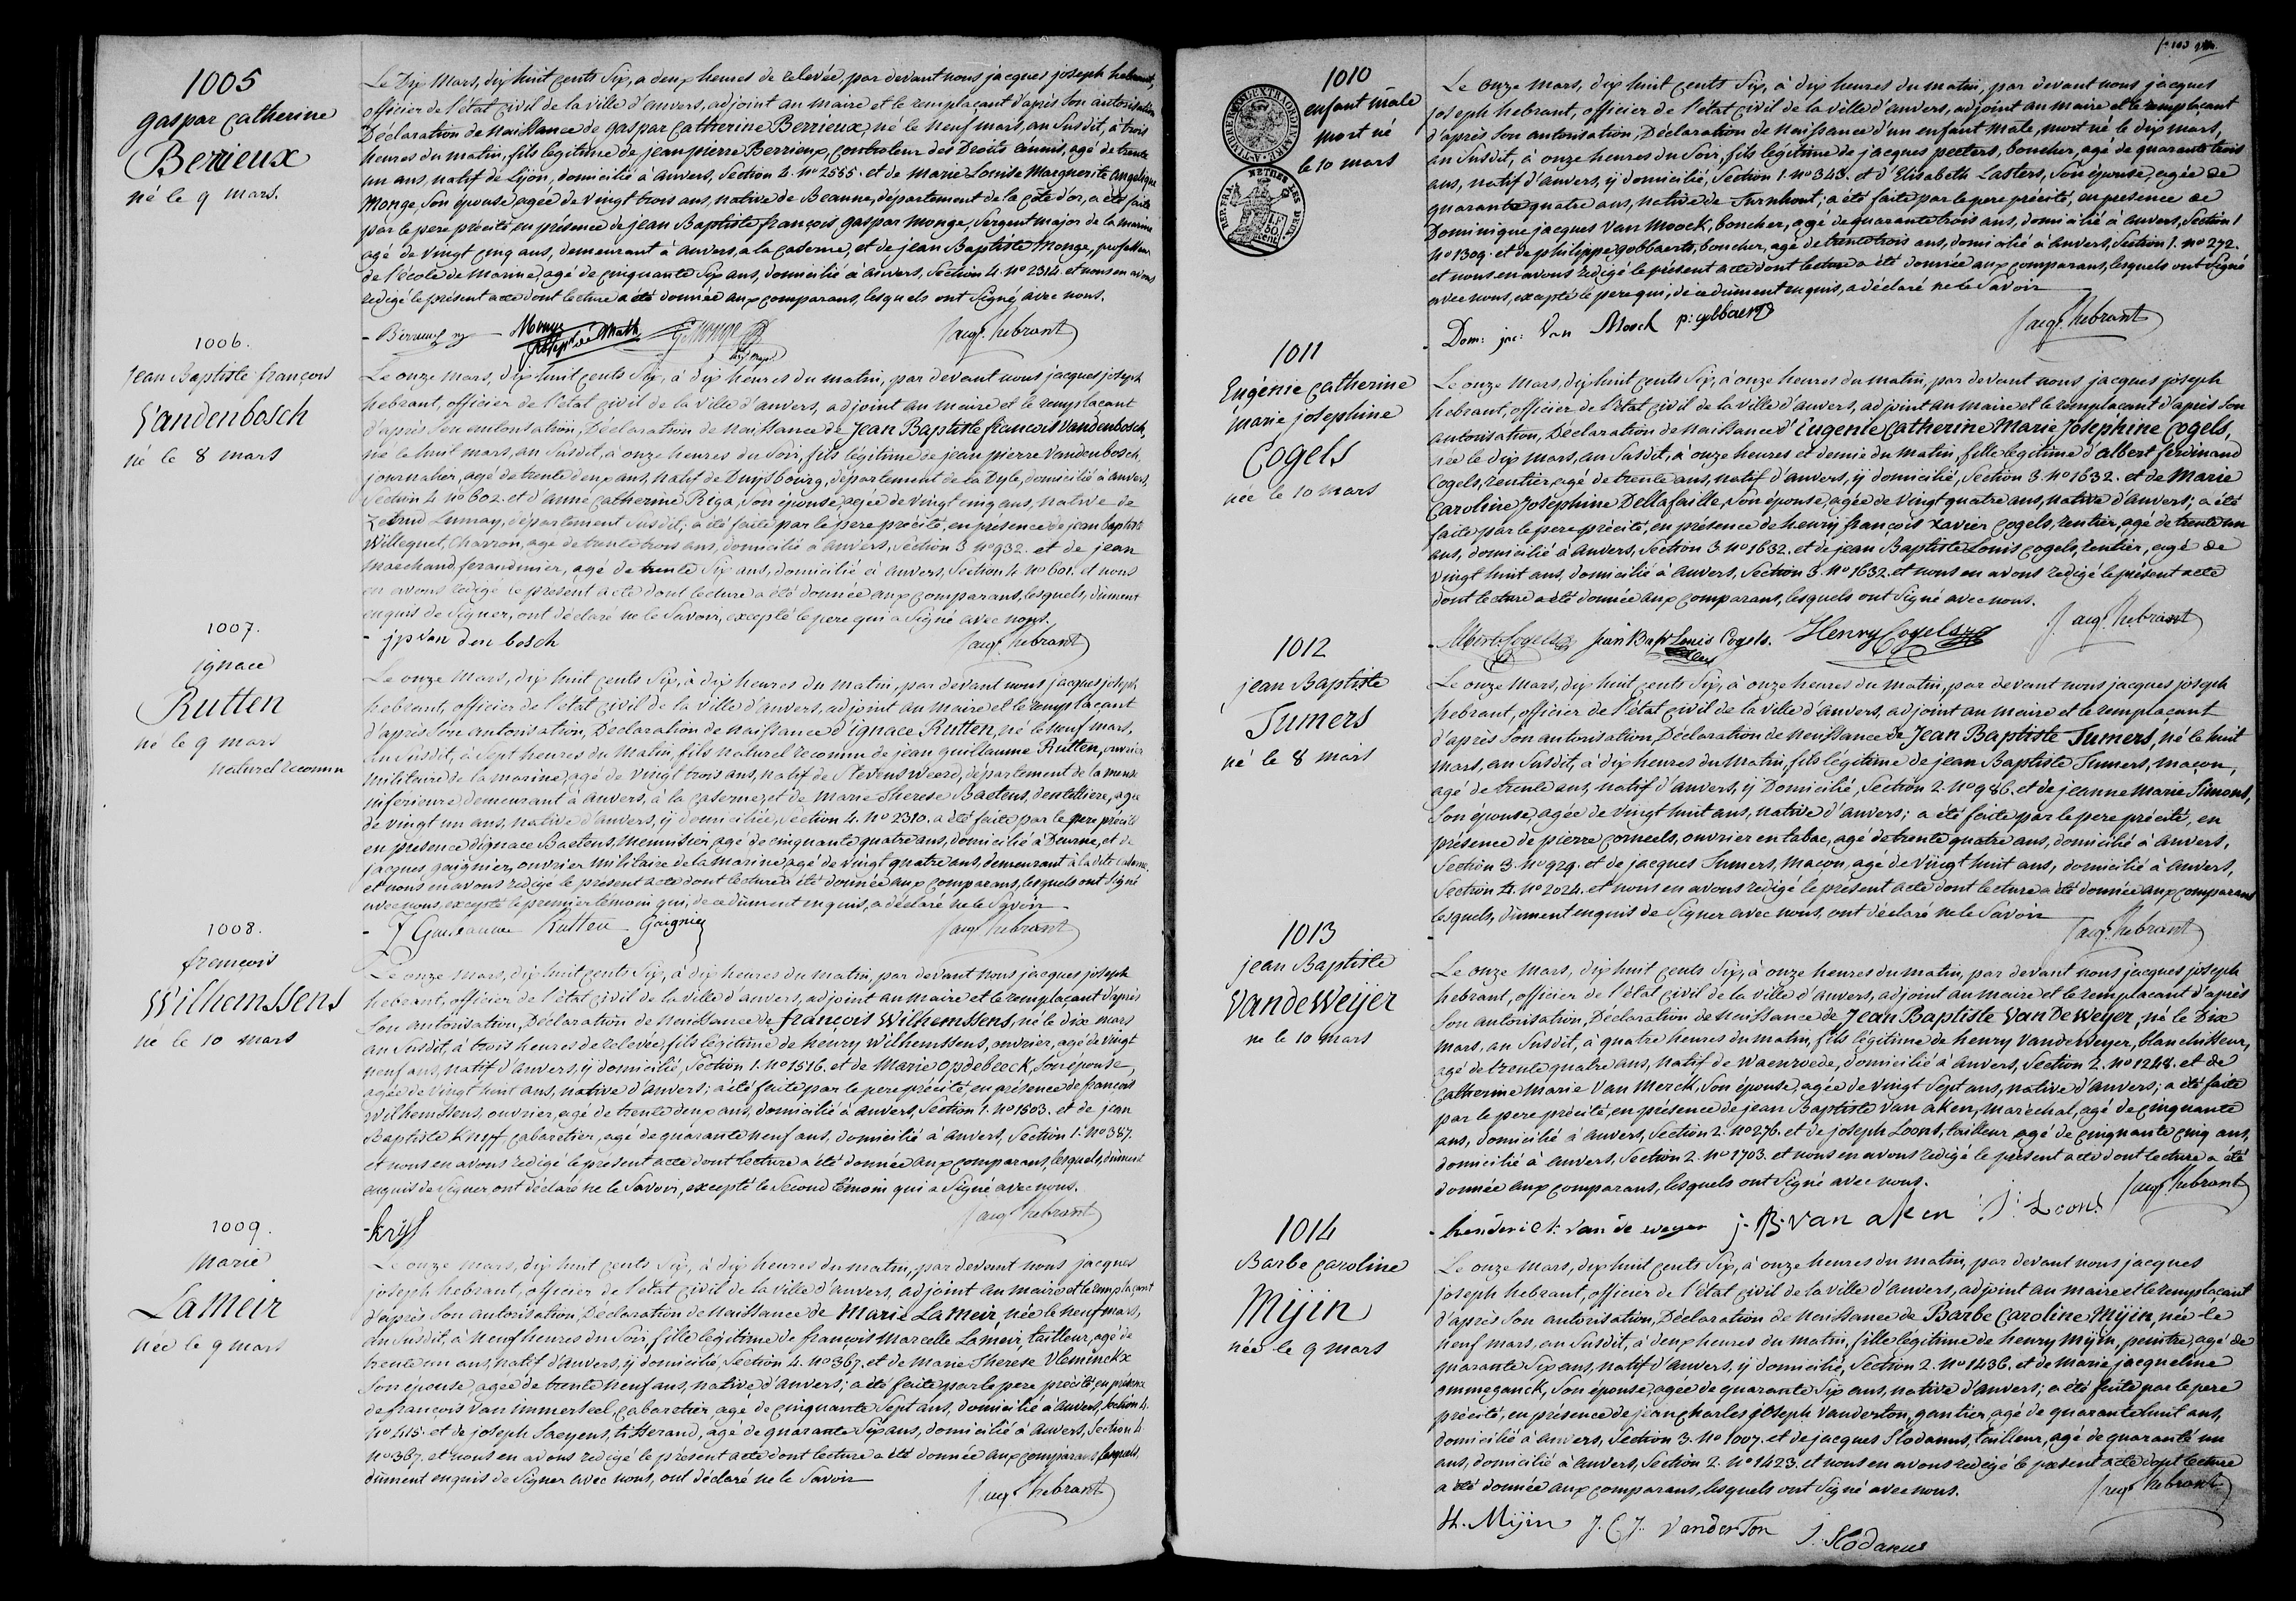 1005
gaspar catherine
Berrieux
né le 9 mars.
Le Dix Mars, dix huit cents Six, a deux heures de relevée, par devant nous jacques joseph hebrant,
officier de l'état civil de la ville d'anvers, adjoint au maire et le remplaçant d'après Son autorisation
Déclaration de Naissance de gaspar Catherine Berrieux, né le Neuf mars, an Susdit, à trois
heures du matin, fils légitime de jean pierre Berrieux, controleur des Droits réunis, agé de trente
un ans, natif de Lijon, domicilié à Anvers, Section 4. N° 2555. et de Marie Louise Marguerite angelique
Monge, Son épouse, agée de vingt trois ans, native de Beaune, département de la Côte d'or, a été faite
par le pere précité en présence de jean Baptiste françois gaspar monge, Sergent major de la marine
agé de vingt cinq ans, demeurant à Anvers, a la caserne, et de jean Baptiste Monge, professeur
de l'école de Marine, agé de cinquante Six ans, domicilié à anvers, Section 4. N° 2314. et nous en avons
redigé le présent acte dont lecture a été donnée aux comparans, lesquels ont Signé avec nous.
Monge
G. Monge
Jacq. hebrant
1006.
Jean Baptiste françois
Vandenbosch
né le 8 mars
Le onze Mars, dix huit cents Six, à dix heures du matin, par devant nous jacques joseph
hebrant, officier de l'état civil de la ville d'anvers, adjoint au maire et le remplaçant
d'après Son autorisation, Déclaration de Naissance de Jean Baptiste francois Vandenbosch,
né le huit mars, an Susdit, à onze heures du Soir, fils légitime de jean pierre Vandenbosch,
journalier, agé de trente deux ans, natif de Duijsbourg, département de la Dyle, domicilié à anvers,
Section 4 N° 602. et d'anne Catherine Riga, Son épouse, agée de vingt cinq ans, native de
Zetrud Lumay, département Susdit; a été faite par le pere précité, en présence de jean baptiste
Willequet, Charron, agé de trente trois ans, domicilié a anvers, Section 3 N° 932. et de jean
Marchand, ferandinier, agé de trente Six ans, domicilié à Anvers, Section 4 N° 601. et nous
en avons redigé le présent acte dont lecture a été donnée aux comparans, lesquels, dûment
enquis de Signer, ont déclaré ne le Savoir, excepté le pere qui a Signé avec nous.
jp van den bosch
Jacq. hebrant
1007.
ignace
Rutten
né le 9 mars
naturel reconnu
Le onze Mars, dix huit cents Six, à dix heures du matin, par devant nous jacques joseph
hebrant, officier de l'état civil de la ville d'anvers, adjoint au maire et le remplaçant
d'après Son autorisation, Déclaration de Naissance d'ignace Rutten, né le neuf mars,
an Susdit, à Sept heures du Matin, fils naturel reconnu de jean guillaume Rutten, ouvrier
militaire de la marine, agé de vingt trois ans, natif de Stevensweerd, département de la meuse
inférieure, demeurant à anvers, à la caserne, et de Marie Therese Baetens, dentelliere, agée
de vingt un ans, native d'anvers, ÿ domiciliée, Section 4. N° 2310. a été faite par le pere précité
en présence d'ignace Baetens, menuisier, agé de cinquante quatre ans, domicilié à Deurne, et de
jacques gaignier, ouvrier militaire de la marine, agé de vingt quatre ans, demeurant à la dite caserne,
et nous en avons redigé le présent acte dont lecture a été donnée aux comparans, lesquels ont Signé
avec nous, excepté le premier témoin qui, de ce dûment enquis, a déclaré ne le Savoir
J Guilleaume Rutten Gaignier
Jacq. hebrant
1008.
francois
Wilhemssens
né le 10 mars
Le onze mars, dix huit cents Six, à dix heures du matin, par devant nous jacques joseph
hebrant, officier de l'état civil de la ville d'anvers, adjoint au maire et le remplaçant d'après
Son autorisation, Déclaration de Naissance de françois Wilhemssens, né le dix mars
an Susdit, à trois heures de relevée, fils légitime de henry Wilhemssens, ouvrier, agé de vingt
neuf ans, natif d'anvers, ÿ domicilié, Section 1. N° 1516. et de Marie opdebeeck, Son épouse,
agée de vingt huit ans, native d'anvers; a été faite par le pere précité, en présence de francois
Wilhemssens, ouvrier, agé de trente deux ans, domicilié à anvers, Section 1. N° 1503. et de jean
Baptiste Kruyf, cabaretier, agé de quarante neuf ans, domicilié à Anvers, Section 1. N° 387.
et nous en avons redigé le présent acte dont lecture a été donnée aux comparans, lesquels, dûment
enquis de Signer ont déclaré ne le Savoir, excepté le Second témoin qui a Signé avec nous.
Jacq. hebrant
1009.
Marie
LaMeir
née le 9 mars
Le onze mars, dix huit cents Six, à dix heures du matin, par devant nous jacques
joseph hebrant, officier de l'état civil de la ville d'anvers, adjoint au maire et le remplaçant
d'après Son autorisation, Déclaration de Naissance de Marie LaMeir, née le neuf mars,
an Susdit, à Neuf heures du Soir, fille légitime de françois Marcelle Lameir, tailleur, agé de
trente un ans, natif d'Anvers, ÿ domicilié, Section 4. N° 367. et de Marie Therese Vleminckx
Son épouse, agée de trente neuf ans, native d'anvers; a été faite par le pere précité, en présence
de françois Van immerseel, cabaretier, agé de cinquante Sept ans, domicilié à anvers, Section 4.
N° 415. et de joseph Saeyens, tisserand, agé de quarante Six ans, domicilié à Anvers, Section 4
N° 367. et nous en avons redigé le présent acte dont lecture a été donnée aux comparans, lesquels,
dûment enquis de Signer avec nous, ont déclaré ne le Savoir
Jacq. hebrant
1010
enfant mâle
mort né
le 10 mars
Le onze mars, dix huit cents Six, à dix heures du matin, par devant nous jacques
joseph hebrant, officier de l'état civil de la ville d'anvers, adjoint au maire et le remplaçant
d'après Son autorisation, Déclaration de Naissance d'un enfant mâle, mort né le dix mars,
an Susdit, à onze heures du Soir, fils légitime de jacques peeters, boucher, agé de quarante trois
ans, natif d'anvers, ÿ domicilié, Section 1. N° 343. et d'Elisabeth Lasters, Son épouse, agée de
quarante quatre ans, native de Turnhout; a été faite par le pere précité, en présence de
Dominique jacques Van Moock, boucher, agé de quarante trois ans, domicilié à Anvers, Section 1
N° 1309. et de philippe gobbaerts, boucher, agé de trente trois ans, domicilié à Anvers, Section 1. N° 272.
et nous en avons redigé le présent acte dont lecture a été donnée aux comparans, lesquels ont Signé
avec nous, excepté le pere qui, de ce dûment enquis, a déclaré ne le Savoir
Dom: jac: Van Moock p: gobbaerts
Jacq. hebrant
1011
Eugénie catherine
marie josephine
Cogels
née le 10 mars
Le onze Mars, dix huit cents Six, à onze heures du matin, par devant nous jacques joseph
hebrant, officier de l'état civil de la ville d'anvers, adjoint au maire et le remplaçant d'après Son
autorisation, Déclaration de Naissance d'Eugénie Catherine Marie Josephine Cogels,
née le dix mars, an Susdit, à onze heures et demie du matin, fille légitime d'albert ferdinand
Cogels, rentier, agé de trente ans, natif d'anvers, ÿ domicilié, Section 3. N° 1632. et de Marie
Caroline Josephine Dellafaille, Son épouse, agée de vingt quatre ans, native d'anvers; a été
faite par le pere précité, en présence de henry françois Xavier Cogels, rentier, agé de trente un
ans, domicilié à Anvers, Section 3 N° 1632. et de jean Baptiste Louis Cogels, rentier, agé de
vingt huit ans, domicilié à anvers, Section 3. N° 1632. et nous en avons redigé le présent acte
dont lecture a été donnée aux comparans, lesquels ont Signé avec nous.
Albert Cogels Jean Bapt Louis Cogels. Henry Cogels
Jacq. hebrant
1012
jean Baptiste
Tumers
né le 8 mars
Le onze Mars, dix huit cents Six, à onze heures du matin, par devant nous jacques joseph
hebrant, officier de l'état civil de la ville d'anvers, adjoint au maire et le remplaçant
d'après Son autorisation, Déclaration de Naissance de Jean Baptiste Tumers, né le huit
mars, an Susdit, à dix heures du matin, fils légitime de jean Baptiste Tumers, maçon,
agé de trente ans, natif d'anvers, ÿ Domicilié, Section 2. N° 986. et de jeanne Marie Simons,
Son épouse, agée de vingt huit ans, native d'anvers; a été faite par le pere précité, en
présence de pierre Corneels, ouvrier en tabac, agé de trente quatre ans, domicilié à anvers,
Section 3. N° 929. et de jacques Tumers, maçon, agé de vingt huit ans, domicilié à anvers,
Section 4. N° 2024. et nous en avons redigé le présent acte dont lecture a été donnée aux comparans
lesquels, dûment enquis de Signer avec nous, ont déclaré ne le Savoir
Jacq. hebrant
1013
jean Baptiste
VandeWeijer
né le 10 mars
Le onze Mars, dix huit cents Six, à onze heures du matin, par devant nous jacques joseph
hebrant, officier de l'état civil de la ville d'Anvers, adjoint au maire et le remplacant d'après
Son autorisation, Déclaration de Naissance de Jean Baptiste VanDeWeyer, né le Dix
mars, an Susdit, à quatre heures du matin, fils légitime de henry Vandeweyer, blanchisseur,
agé de trente quatre ans, natif de Waenrode, domicilié à anvers, Section 2. N° 1248. et de
Catherine Marie Van Merck, Son épouse, agée de vingt Sept ans, native d'anvers; a été faite
par le pere précité, en présence de jean Baptiste Van aken, maréchal, agé de cinquante
ans, domicilié à anvers, Section 2. N° 276. et de joseph Loons, tailleur, agé de cinquante cinq ans,
domicilié à anvers, Section 2. N° 1703. et nous en avons redigé le présent acte dont lecture a été
donnée aux comparans, lesquels ont Signé avec nous.
Jacq. hebrant
henderick van de weyer j. B. van aken J: Loons
1014
Barbe Caroline
Mijin
née le 9 mars
Le onze Mars, dix huit cents Six, à onze heures du matin, par devant nous jacques
joseph hebrant, officier de l'état civil de la ville d'Anvers, adjoint au maire et le remplaçant
d'après Son autorisation, Déclaration de Naissance de Barbe Caroline Mijin, née le
neuf mars, an Susdit, à deux heures du matin, fille légitime de henry Mijin, peintre, agé de
quarante Six ans, natif d'anvers, ÿ domicilié, Section 2. N° 1436. et de marie jacqueline
ommeganck, Son épouse, agée de quarante Six ans, native d'anvers; a été faite par le pere
précité, en présence de jean Charles joseph Vanderton, gantier, agé de quarante huit ans,
domicilié à anvers, Section 3. N° 1007. et de jacques Slodanus, tailleur, agé de quarante un
ans, domicilié à Anvers, Section 2. N° 1423. et nous en avons redigé le présent acte dont lecture
a été donnée aux comparans, lesquels ont Signé avec nous.
Jacq. hebrant
H. Mijin J. C J. VanderTon J. Slodanus